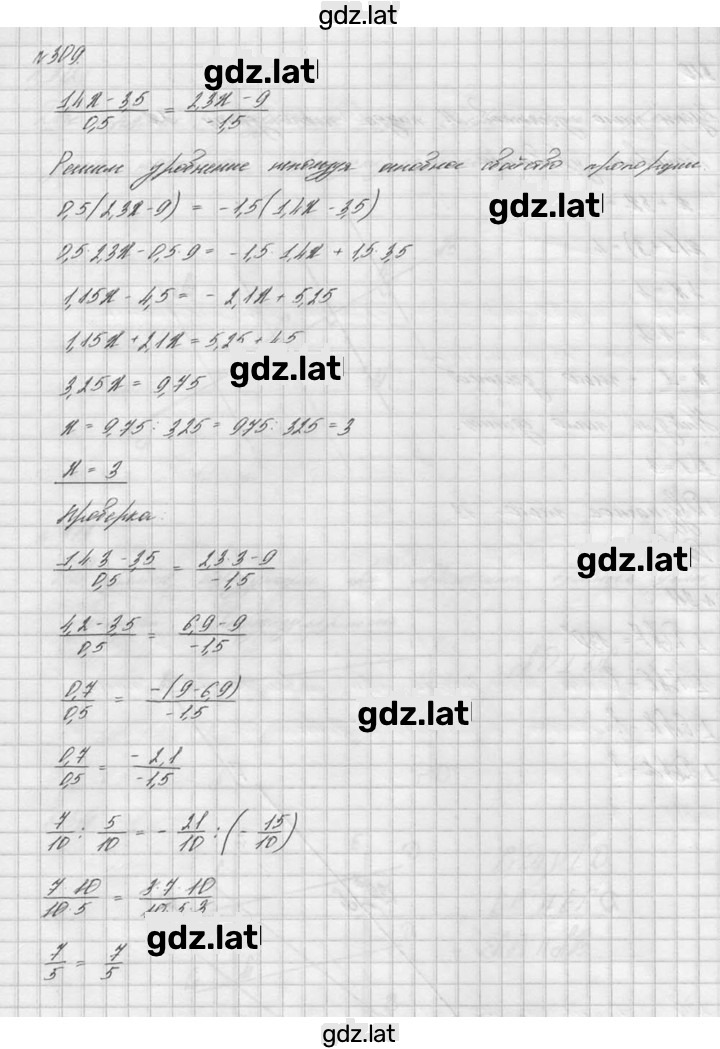 gdz.lat
№309.
gdz.lat
(1,4x - 3,5)/0,5 = (2,3x - 9)/-1,5
Решим уравнение используя основное свойство пропорции.
0,5(2,3x - 9) = -1,5(1,4x - 3,5)
gdz.lat
0,5·2,3x - 0,5·9 = -1,5·1,4x + 1,5·3,5
1,15x - 4,5 = -2,1x + 5,25
1,15x + 2,1x = 5,25 + 4,5
gdz.lat
3,25x = 9,75
x = 9,75 : 3,25 = 975 : 325 = 3
x = 3
Проверка:
(1,4·3 - 3,5)/0,5 = (2,3·3 - 9)/-1,5
gdz.lat
(4,2 - 3,5)/0,5 = (6,9 - 9)/-1,5
0,7/0,5 = -(9 - 6,9)/-1,5
gdz.lat
0,7/0,5 = -2,1/-1,5
7/10 : 5/10 = -21/10 : (-15/10)
7·10/10·5 = 3·7·10/10·5·3
gdz.lat
7/5 = 7/5
gdz.lat